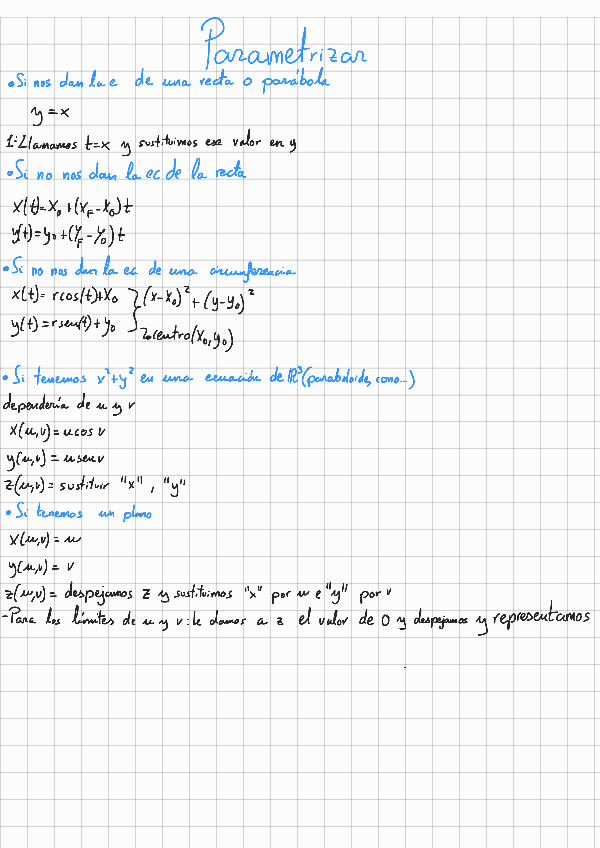 Parametrizar
•Si nos dan la e de una recta o parábola
y=x
1:Llamamos t=x y sustituimos ese valor en y
•Si no nos dan la ec de la recta
x(t)=x₀+(x_F-x₀)t
y(t)=y₀+(y_F-y₀)t
•Si no nos dan la ec de una circunferencia
x(t)=rcos(t)+x₀ } (x-x₀)²+(y-y₀)²
y(t)=rsen(t)+y₀ centro(x₀,y₀)
•Si tenemos x²+y² en una ecuación de ℝ³(paraboloide, cono...)
dependería de u y v
x(u,v)=ucos v
y(u,v)=usenv
z(u,v)=sustituir "x", "y"
•Si tenemos un plano
x(u,v)=u
y(u,v)=v
z(u,v)=despejamos z y sustituimos "x" por u e "y" por v
-Para los límites de u y v:le damos a z el valor de 0 y despejamos y representamos